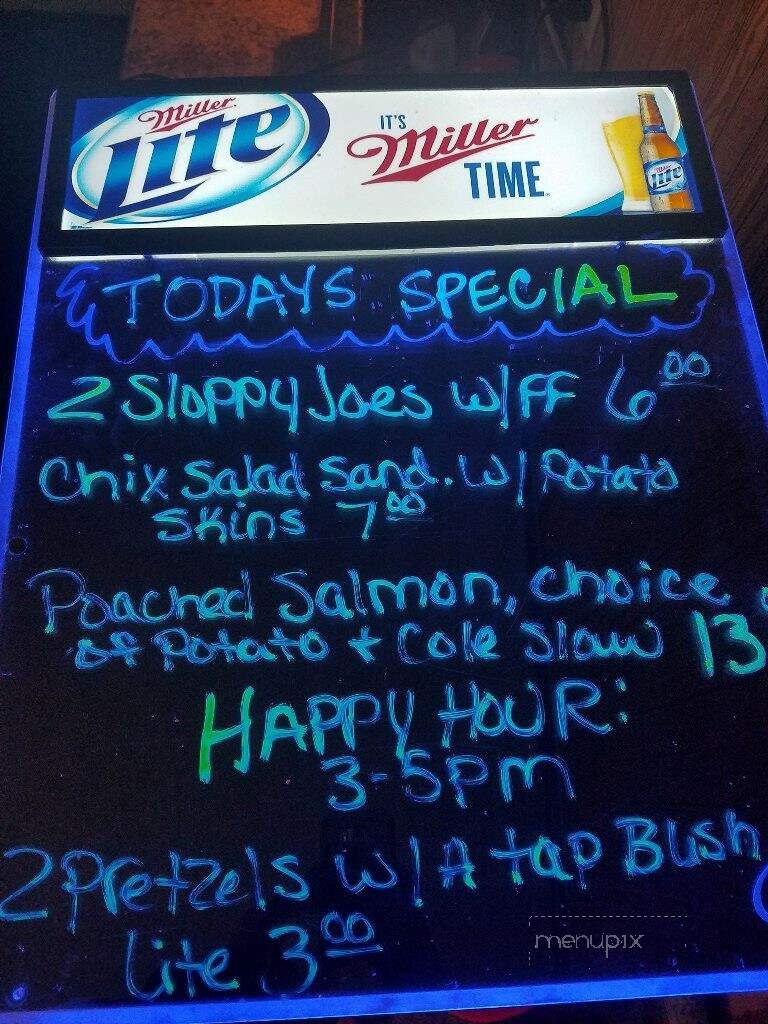 Miller
Lite
IT'S
Miller
TIME
Lite
TODAYS SPECIAL
2 Sloppy Joes w/FF 6.00
Chix Salad Sand. w/ Potato
Skins 7.00
Poached Salmon, choice
of Potato + Cole Slaw 13
HAPPY HOUR:
3-5PM
2 Pretzels w/A tap Bush
Lite 3.00
menupix